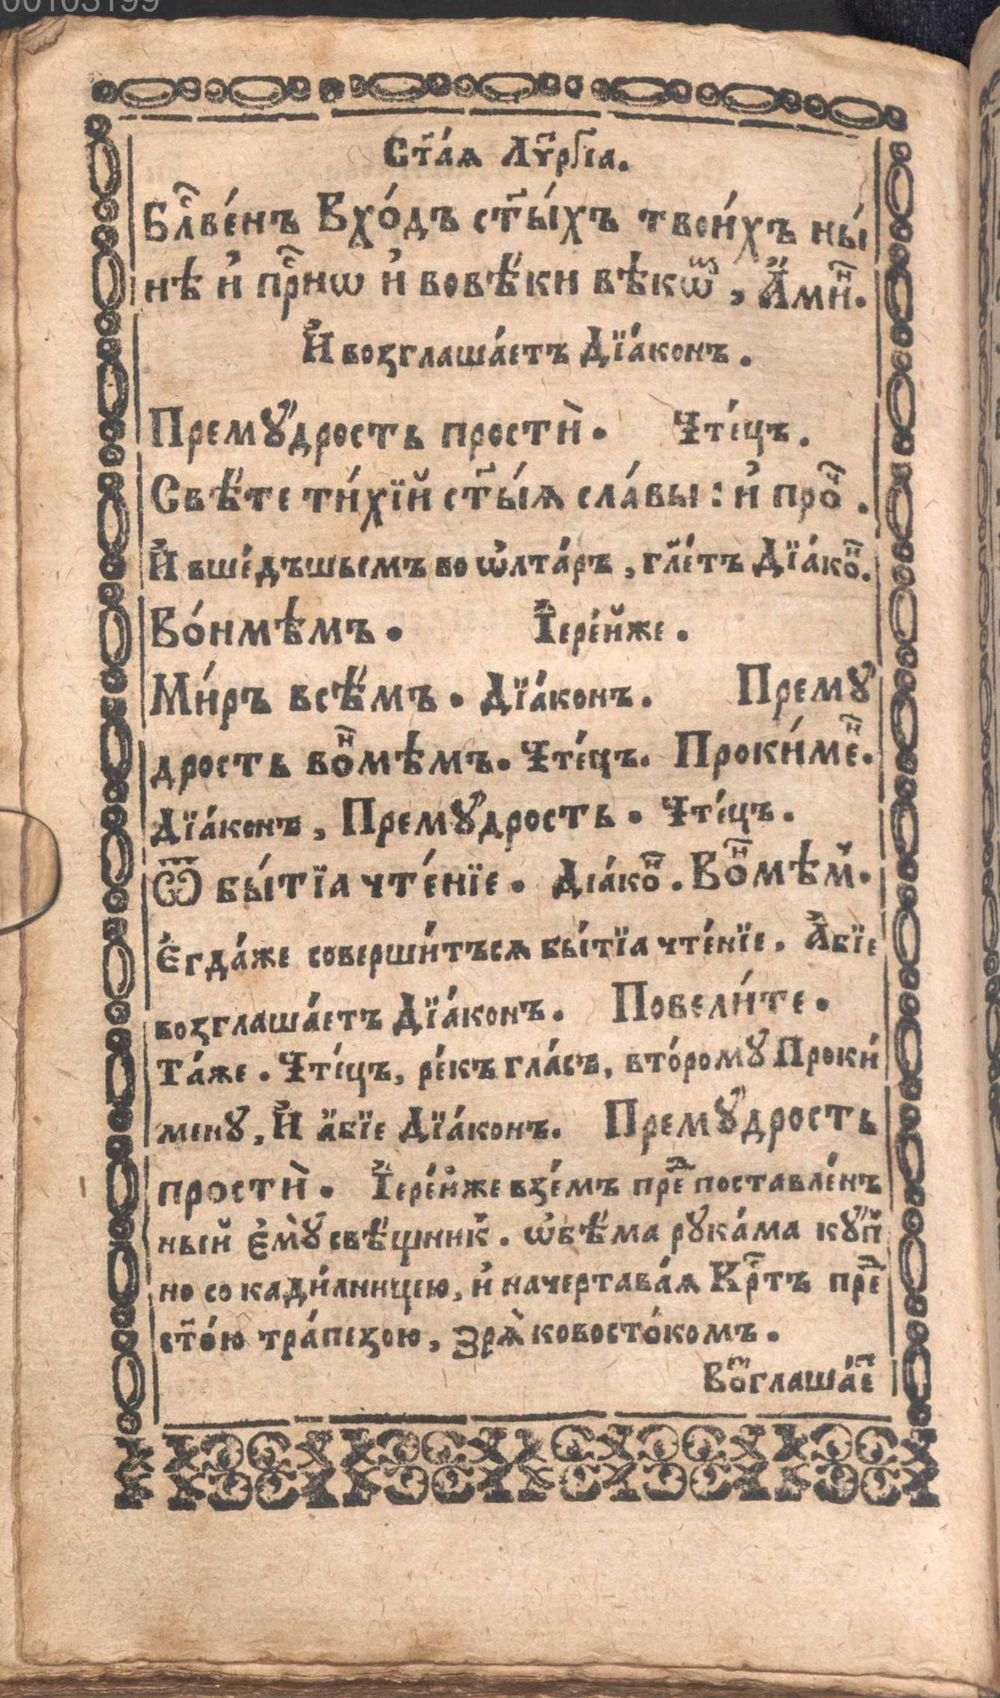 00103199
Ст҃а́ѧ Лѷрⷢ҇їа.
Бл҃ве́нъ Вхо́дъ ст҃ы́хъ твои́хъ ны́
нѣ и҆ прⷭ҇нѡ и҆ вовѣ́ки вѣкѡⷡ҇, А҆ми́ⷩ҇.
И҆ возглаша́етъ Дїа́конъ.
Премꙋ́дрость прости̑. Чте́цъ.
Свѣ́те ти́хїй ст҃ы́ѧ сла́вы: и҆ проⷱ҇.
И҆ вше́дъшьемъ во ѡ҆лта́ръ, гл҃етъ Дїа́коⷩ҇.
Во́нмѣмъ. І҆ере́йже.
Ми́ръ всѣ́мъ. Дїа́конъ. Премꙋ
дрость воⷩ҇мѣмъ. Чте́цъ. Проки́меⷩ҇.
Дїа́конъ, Премꙋ́дрость. Чте́цъ.
Ѿ бы́тїа чте́нїе. Діа́коⷩ҇. Воⷩ҇мѣⷨ.
Е҆гда́же соверши́тъсѧ бы́тїа чте́нїе. А҆бїе
возглаша́етъ Дїа́конъ. Повели́те.
Та́же. Чте́цъ, ре́къ гла́съ, вто́ромꙋ Проки́
менꙋ, И҆ а҆́бїе Дїа́конъ. Премꙋ́дрость
прости̑. І҆ере́йже взе́мъ преⷣ поставле́нъ
ный е҆мꙋ̀ свѣ́щникъ. ѡ҆бѣ́ма рꙋка́ма кꙋпⷩ
но со кади́лницею, и҆ начертава́ѧ Крⷭ҇тъ преⷣ
ст҃о́ю тра́пезою, зрѧ̀ ковосто́комъ.
Воⷥглаша́еⷮ